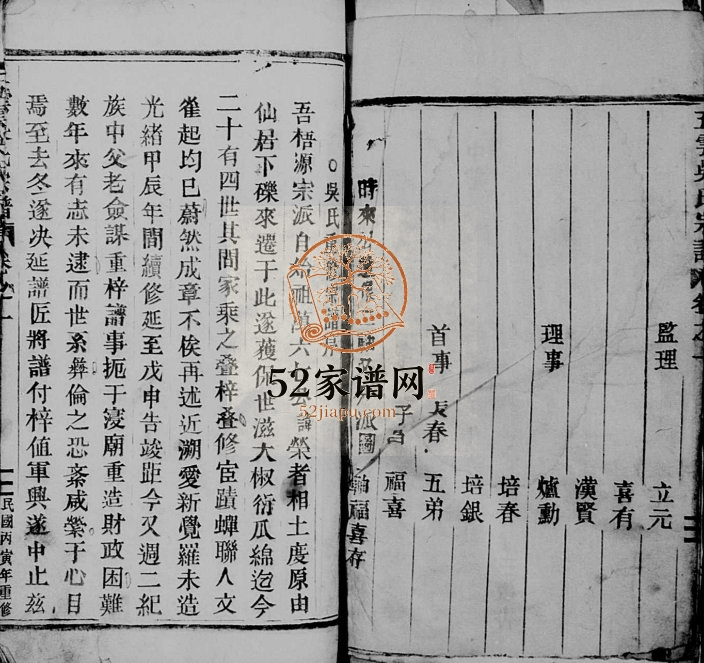 監理
立元
喜有
漢賢
理事
爐動
培春
培銀
首事
長春
五弟
福喜
軸福喜存
吳氏重修宗譜序
吾梧源宗派自始祖萬六公諱榮者相土度原由
仙居下礫來遷于此遂獲俾世滋大椒衍瓜綿迄今
二十有四世其間家乘之叠梓叠修宦蹟蟬聯人文
雀起均已蔚然成章不俟再述近溯愛新覺羅未造
光緒甲辰年間續修延至戊申告竣距今又週二紀
族中父老僉謀重梓譜事扼于寢廟重造財政困難
數年來有志未逮而世系彝倫之恐紊咸縈于心目
焉至去冬遂决延譜匠將譜付梓值軍興遂中止茲
民國丙寅年重修
52家谱网
52jiapu.com